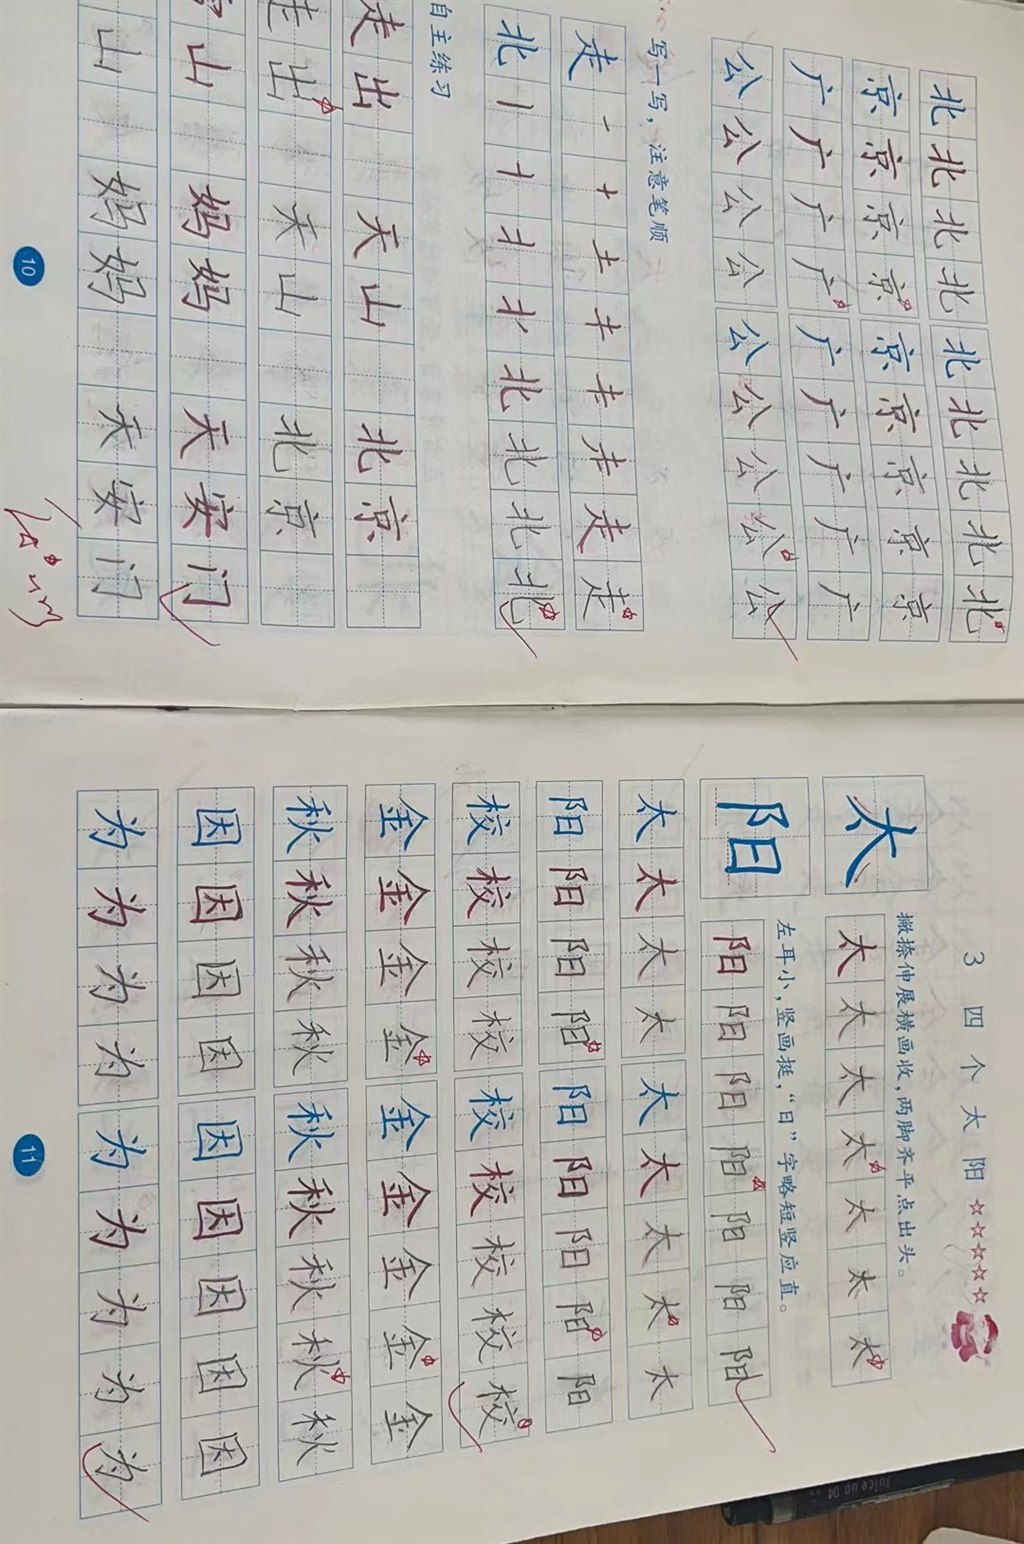 北北北北北北北北北
京京京京京京京京京
广广广广广广广广广
公公公公公公公公公
写一写，注意笔顺
走 一 十 土 走 走
北 北 北 北 北
自主练习
走出 天山 北京
走出 天山 北京
山 妈妈 天安门
山 妈妈 天安门
10
3 四个太阳 ☆☆☆☆☆
撇捺伸展横画收，两脚齐平点出头。
太太太太太太太太
左耳小，竖画挺，“日”字略短竖应直。
阳阳阳阳阳阳阳阳
太太太太太太太太太
阳阳阳阳阳阳阳阳阳
校校校校校校校校校
金金金金金金金金金
秋秋秋秋秋秋秋秋秋
因因因因因因因因因
为为为为为为为为为
11